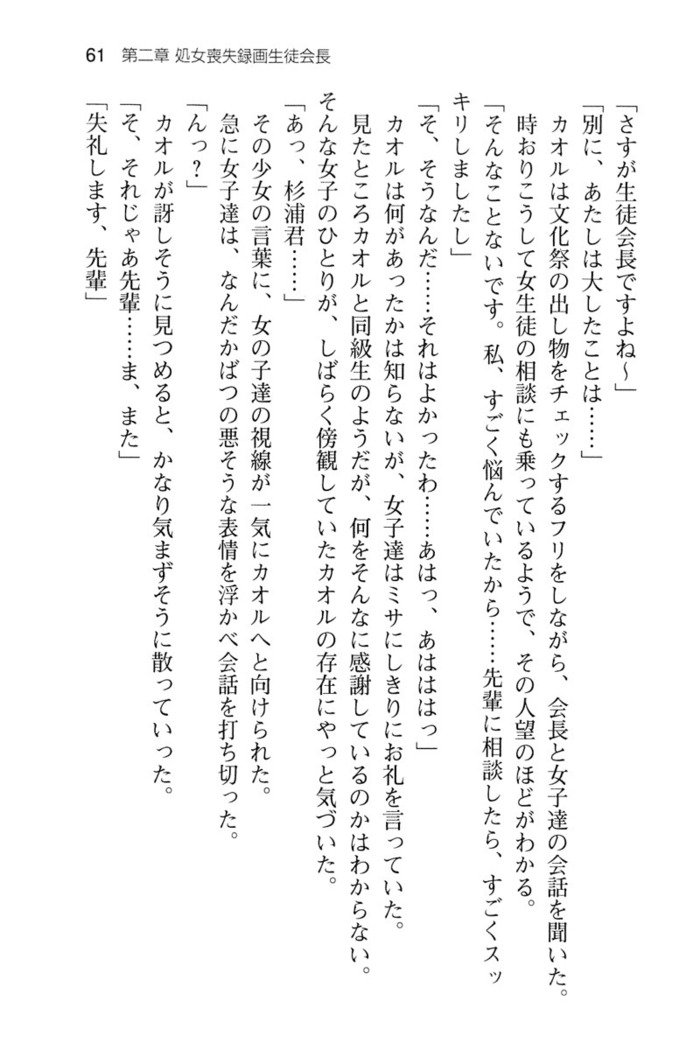 61 第二章 処女喪失録画生徒会長
「さすが生徒会長ですよね～」
「別に、あたしは大したことは……」
カオルは文化祭の出し物をチェックするフリをしながら、会長と女子達の会話を聞いた。
時おりこうして女生徒の相談にも乗っているようで、その人望のほどがわかる。
「そんなことないです。私、すごく悩んでいたから……先輩に相談したら、すごくスッ
キリしましたし」
「そ、そうなんだ……それはよかったわ……あはっ、あはははっ」
カオルは何があったかは知らないが、女子達はミサにしきりにお礼を言っていた。
見たところカオルと同級生のようだが、何をそんなに感謝しているのかはわからない。
そんな女子のひとりが、しばらく傍観していたカオルの存在にやっと気づいた。
「あっ、杉浦君……」
その少女の言葉に、女の子達の視線が一気にカオルへと向けられた。
急に女子達は、なんだかばつの悪そうな表情を浮かべ会話を打ち切った。
「んっ？」
カオルが訝しそうに見つめると、かなり気まずそうに散っていった。
「そ、それじゃあ先輩……ま、また」
「失礼します、先輩」